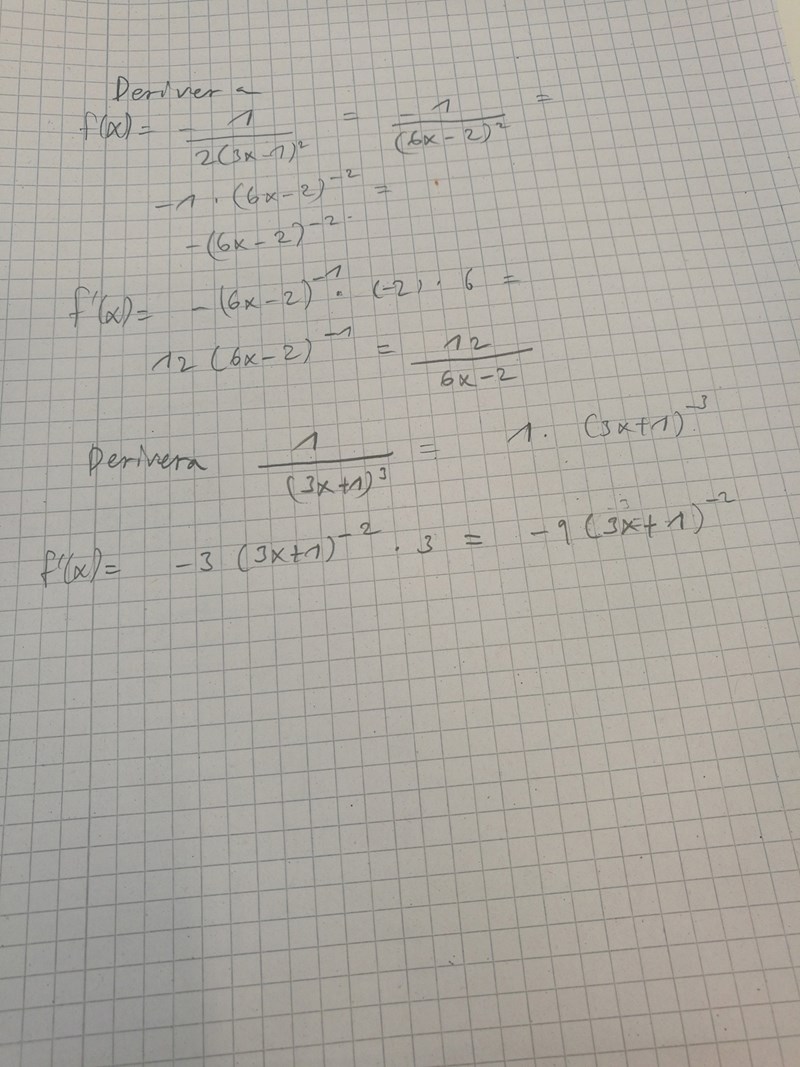 Derivera
f(x) = - 1/2(3x-1)² = -1/(6x-2)² =
-1 · (6x-2)⁻² =
-(6x-2)⁻²
f'(x) = -(6x-2)⁻¹ · (-2) · 6 =
12 (6x-2)⁻¹ = 12/6x-2
Derivera 1/(3x+1)³ = 1 · (3x+1)⁻³
f'(x) = -3 (3x+1)⁻² · 3 = -9 (3x+1)⁻²